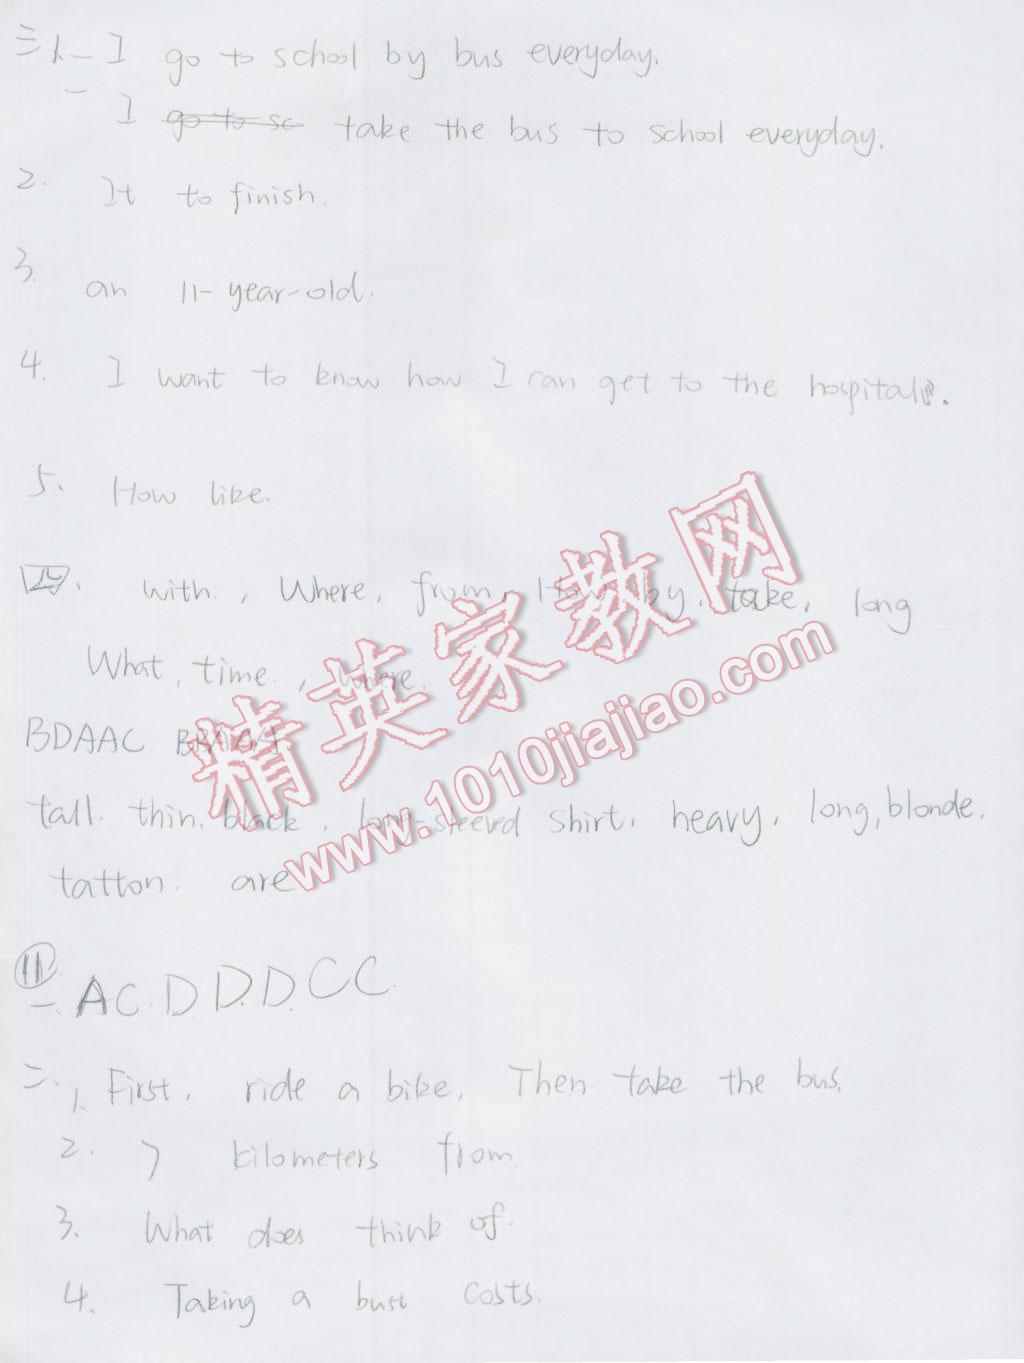 三、1. I go to school by bus everyday.
I go to sc take the bus to school everyday.
2. It to finish.
3. an 11-year-old.
4. I want to know how I can get to the hospital.
5. How like.
四. with., Where, from, How, by, take, long
What, time., where.
BDAAC
tall. thin. black, long-sleeved shirt, heavy, long, blonde.
tatton. are
11
一. A C. D. D. D. C C.
二. 1、First, ride a bike, Then take the bus.
2. 7 kilometers from
3. What does think of.
4. Taking a bust costs.
精英家教网
www.1010jiajiao.com